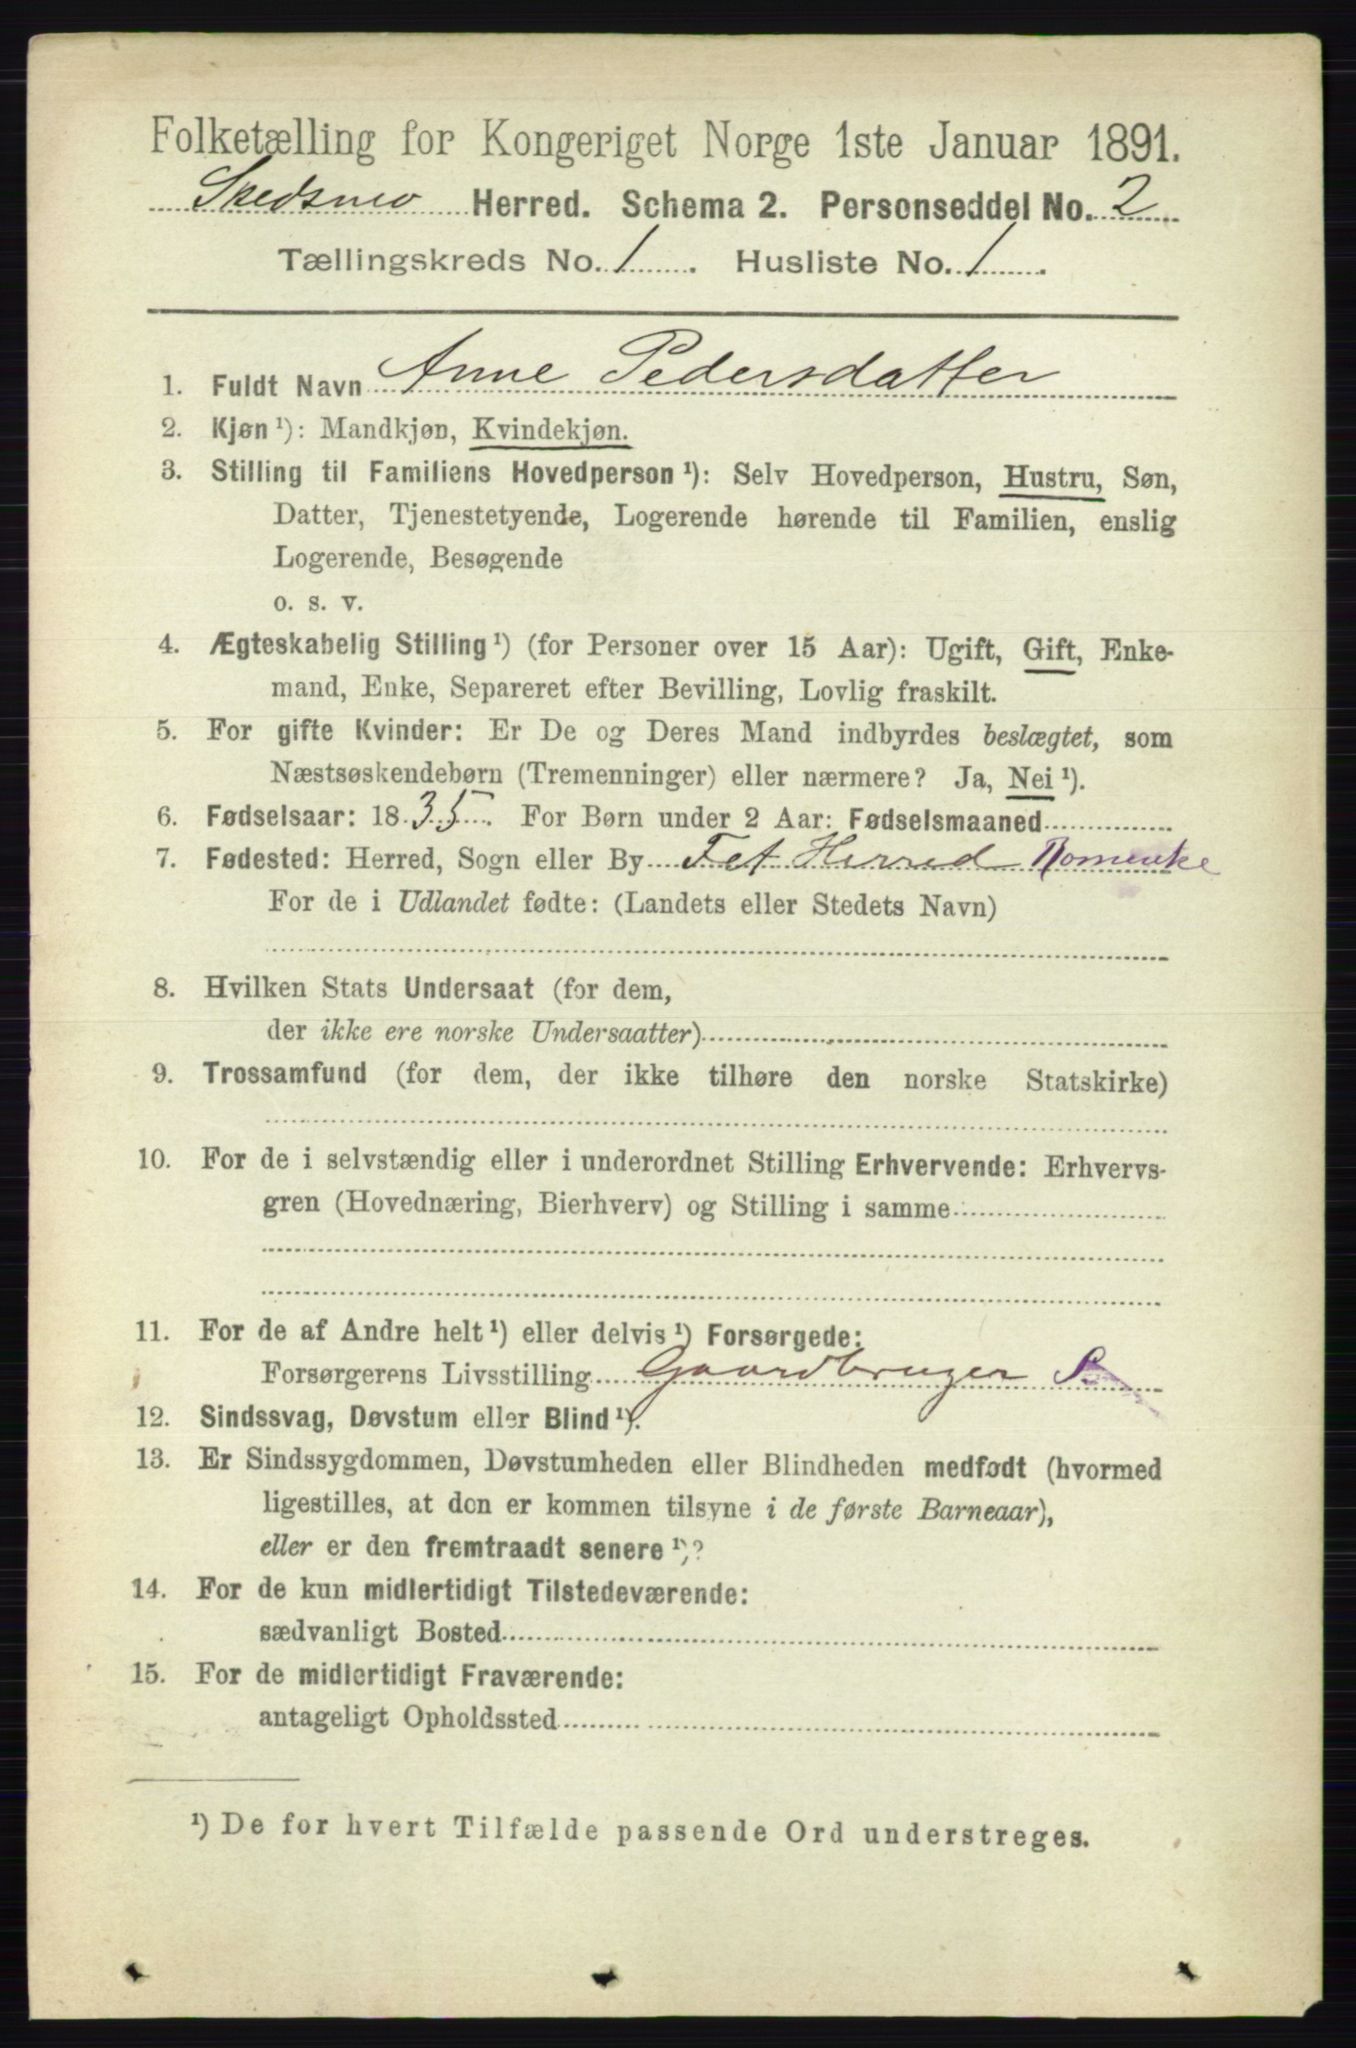 Folketælling for Kongeriget Norge 1ste Januar 1891.
Skedsmo Herred. Schema 2. Personseddel No. 2
Tællingskreds No. 1. Husliste No. 1.
1. Fuldt Navn Anne Pedersdatter
2. Kjøn ¹): Mandkjøn, Kvindekjøn.
3. Stilling til Familiens Hovedperson ¹): Selv Hovedperson, Hustru, Søn,
Datter, Tjenestetyende, Logerende hørende til Familien, enslig
Logerende, Besøgende
o. s. v.
4. Ægteskabelig Stilling ¹) (for Personer over 15 Aar): Ugift, Gift, Enke-
mand, Enke, Separeret efter Bevilling, Lovlig fraskilt.
5. For gifte Kvinder: Er De og Deres Mand indbyrdes beslægtet, som
Næstsøskendebørn (Tremenninger) eller nærmere? Ja, Nei ¹).
6. Fødselsaar: 1835. For Børn under 2 Aar: Fødselsmaaned
7. Fødested: Herred, Sogn eller By Fet Herred Romerike
For de i Udlandet fødte: (Landets eller Stedets Navn)
8. Hvilken Stats Undersaat (for dem,
der ikke ere norske Undersaatter)
9. Trossamfund (for dem, der ikke tilhøre den norske Statskirke)
10. For de i selvstændig eller i underordnet Stilling Erhvervende: Erhvervs-
gren (Hovednæring, Bierhverv) og Stilling i samme
11. For de af Andre helt ¹) eller delvis ¹) Forsørgede:
Forsørgerens Livsstilling Gaardbruger S
12. Sindssvag, Døvstum eller Blind ¹).
13. Er Sindssygdommen, Døvstumheden eller Blindheden medfødt (hvormed
ligestilles, at den er kommen tilsyne i de første Barneaar),
eller er den fremtraadt senere ¹)?
14. For de kun midlertidigt Tilstedeværende:
sædvanligt Bosted
15. For de midlertidigt Fraværende:
antageligt Opholdssted
¹) De for hvert Tilfælde passende Ord understreges.